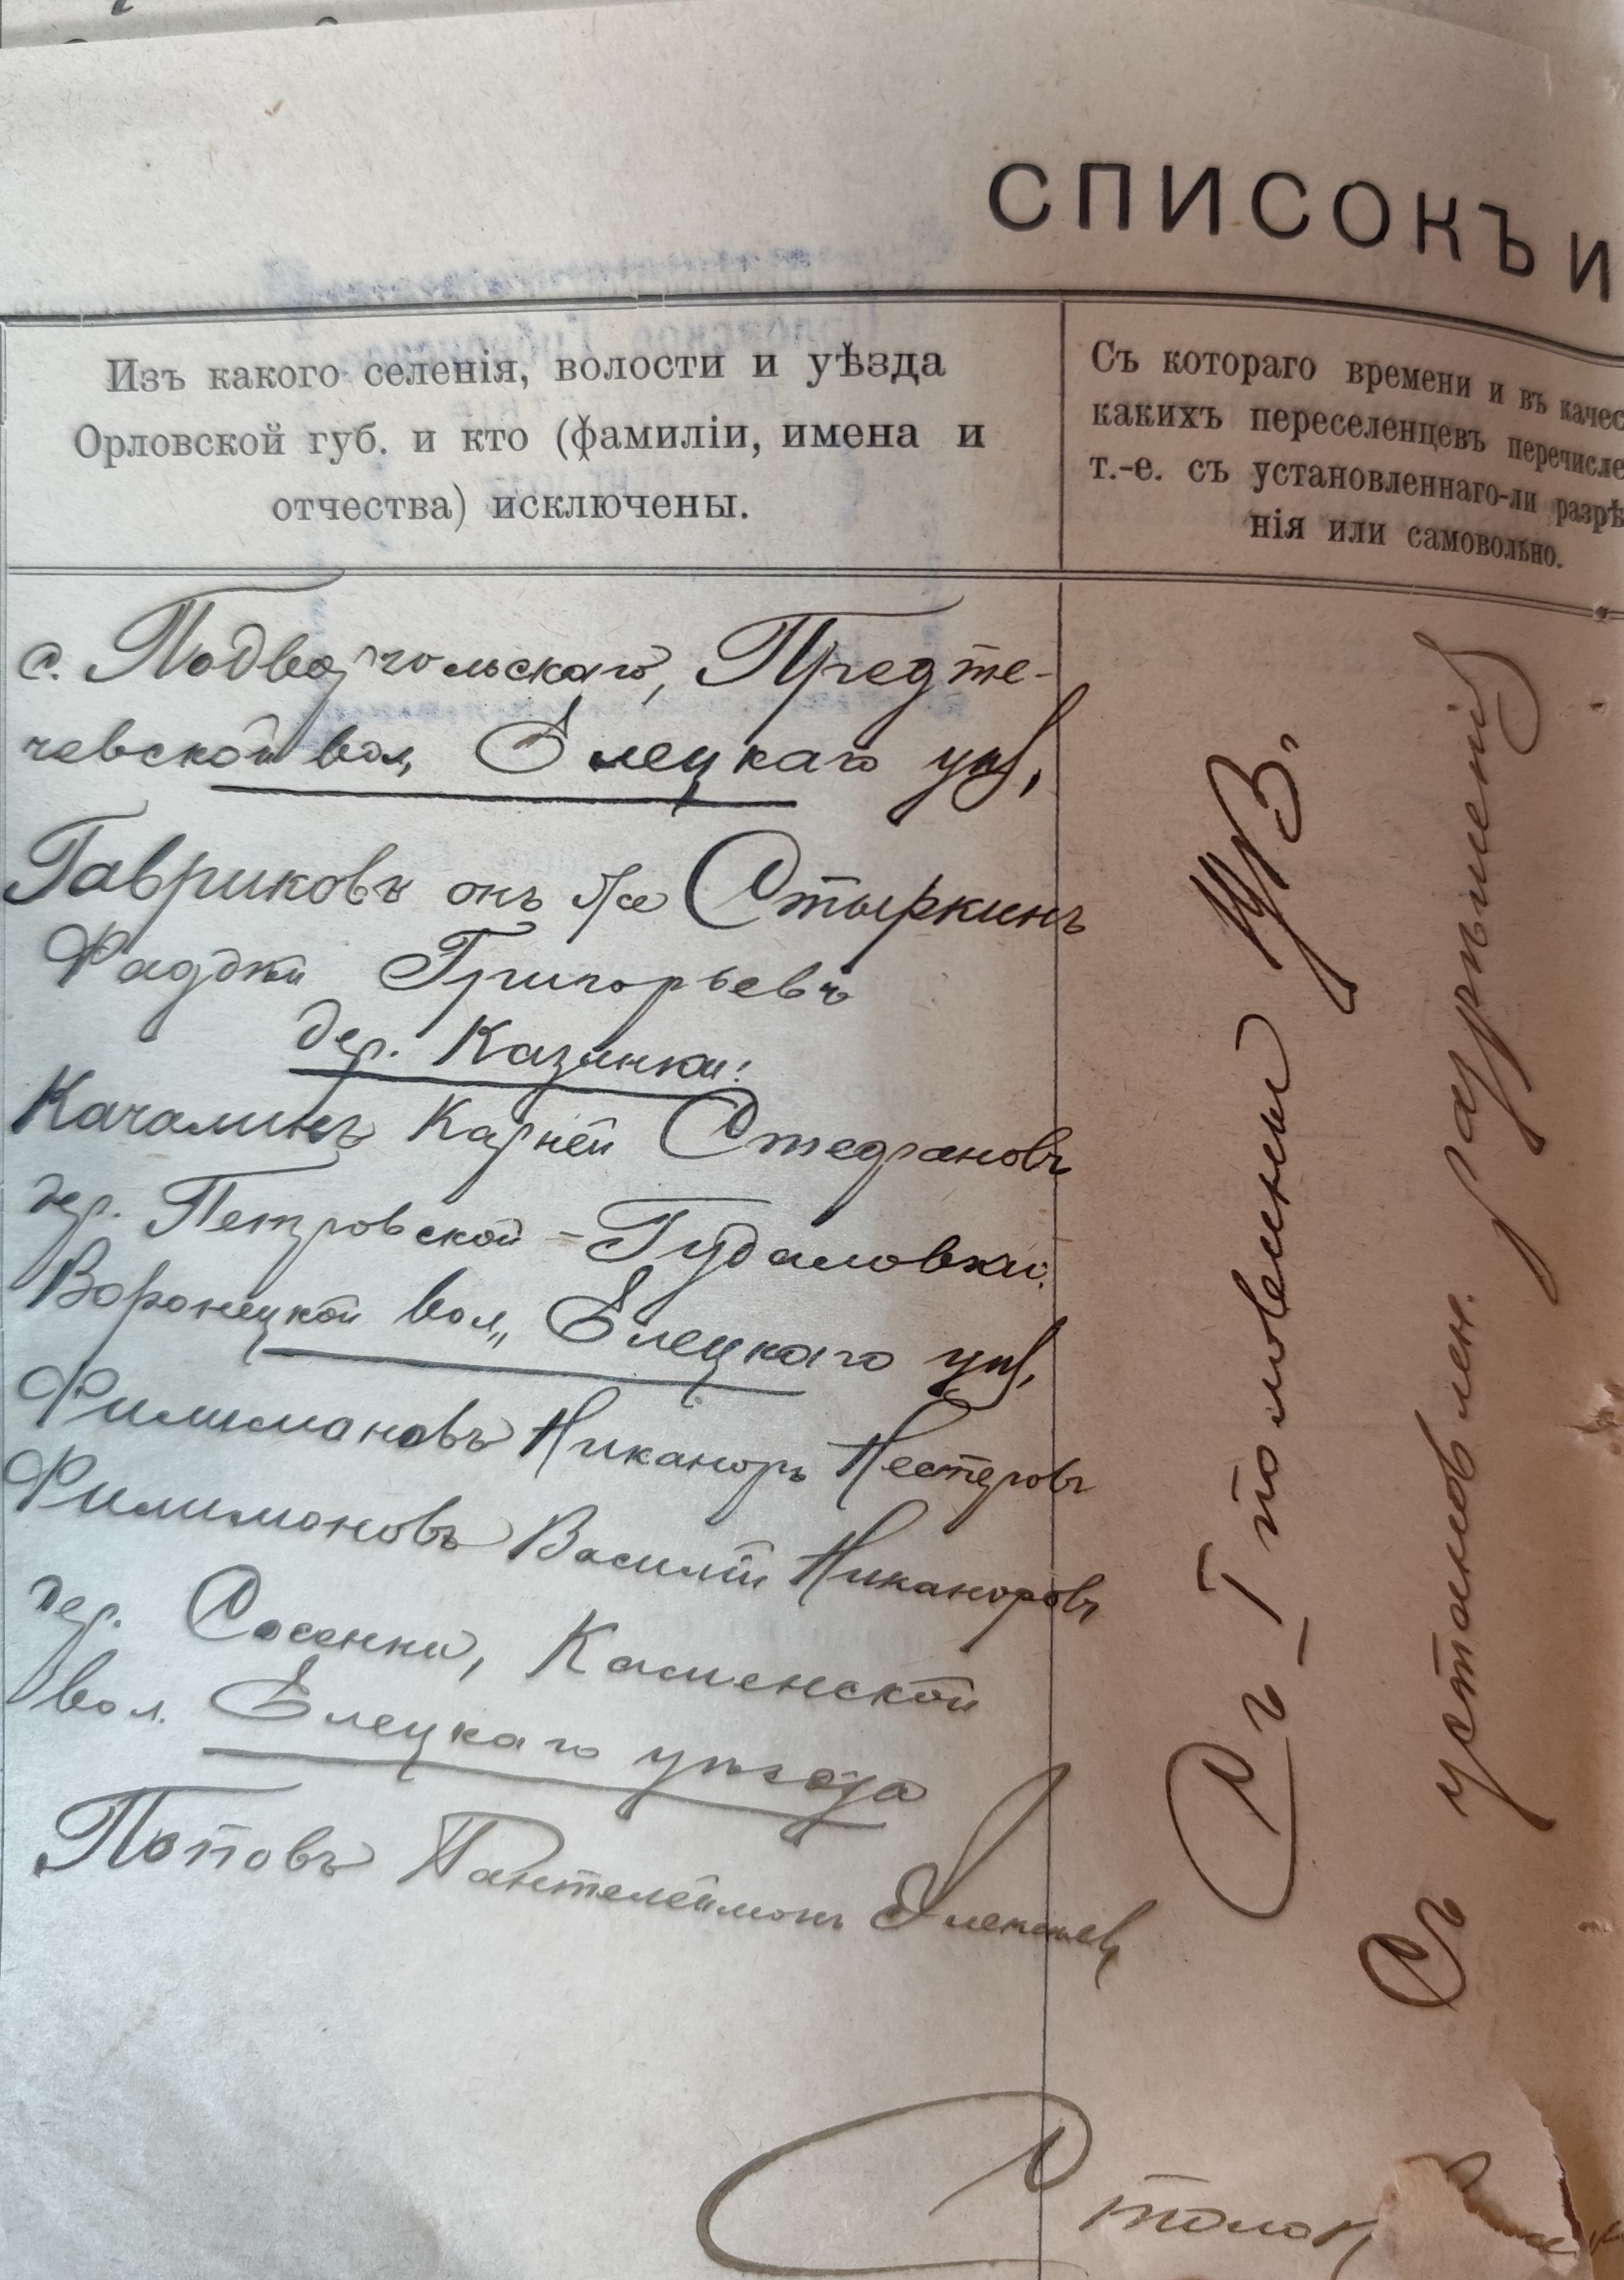 СПИСОКЪ И
Изъ какого селенія, волости и уѣзда
Орловской губ. и кто (фамиліи, имена и
отчества) исключены.
Съ котораго времени и въ качес
какихъ переселенцевъ перечисле
т.-е. съ установленнаго-ли разрѣ
нія или самовольно.
с. Подворгольскаго, Предте-
чевской вол, Елецкаго уѣз,
Гавриковъ онъ же Стыркинъ
Фаддей Григорьевъ
дер. Казинки:
Качалинъ Карней Стефановъ
дер. Петровской-Гудаловки.
Воронецкой вол,, Елецкаго уѣз,
Филимановъ Никаноръ Нестеровъ
Филимоновъ Василій Никаноровъ
дер. Сосенки, Каменской
вол. Елецкаго уѣзда
Поповъ Пантелеймонъ Алексѣев
Съ 1 половины
Съ установлен. разрѣшенія